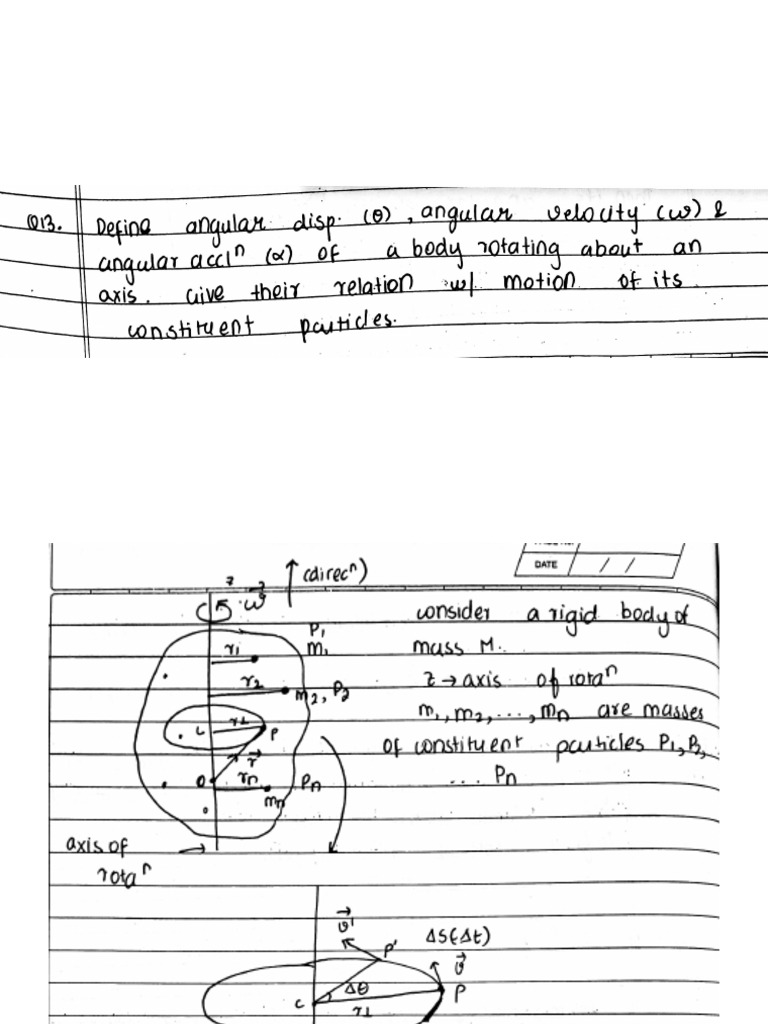 Q13. Define angular disp. (θ), angular velocity (ω) &
angular accl^n (α) of a body rotating about an
axis. Give their relation w/ motion of its
constituent particles.
DATE / /
z ω⃗ ↑ (direc^n)
consider a rigid body of
mass M.
z → axis of rota^n
m₁, m₂, ..., mn are masses
of constituent particles P₁, P₂,
... Pn
r₁ P₁
m₁
r₂ m₂, P₂
C r⊥ P
r⃗
O rn Pn
mn
axis of →
rota^n
v⃗' ΔS(Δt)
P' v⃗
Δθ
C r⊥ P